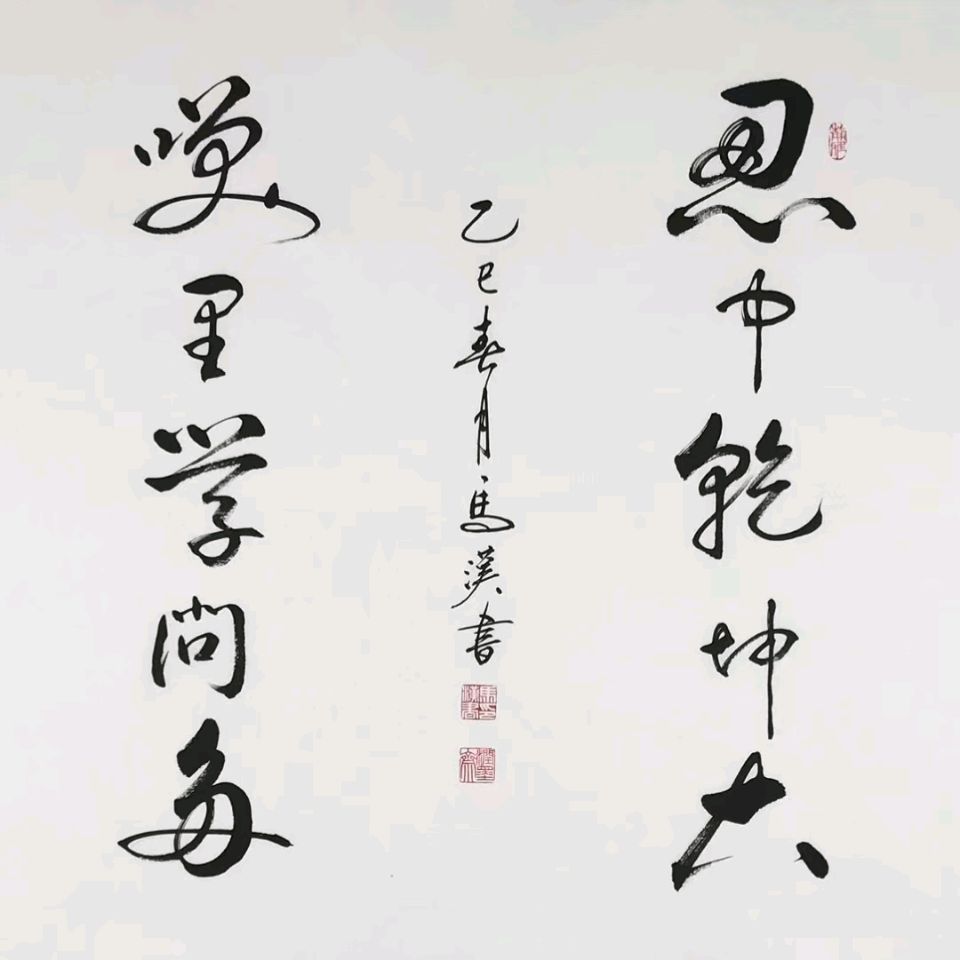 忍中乾坤大
里学问多
乙巳春月馬漢書